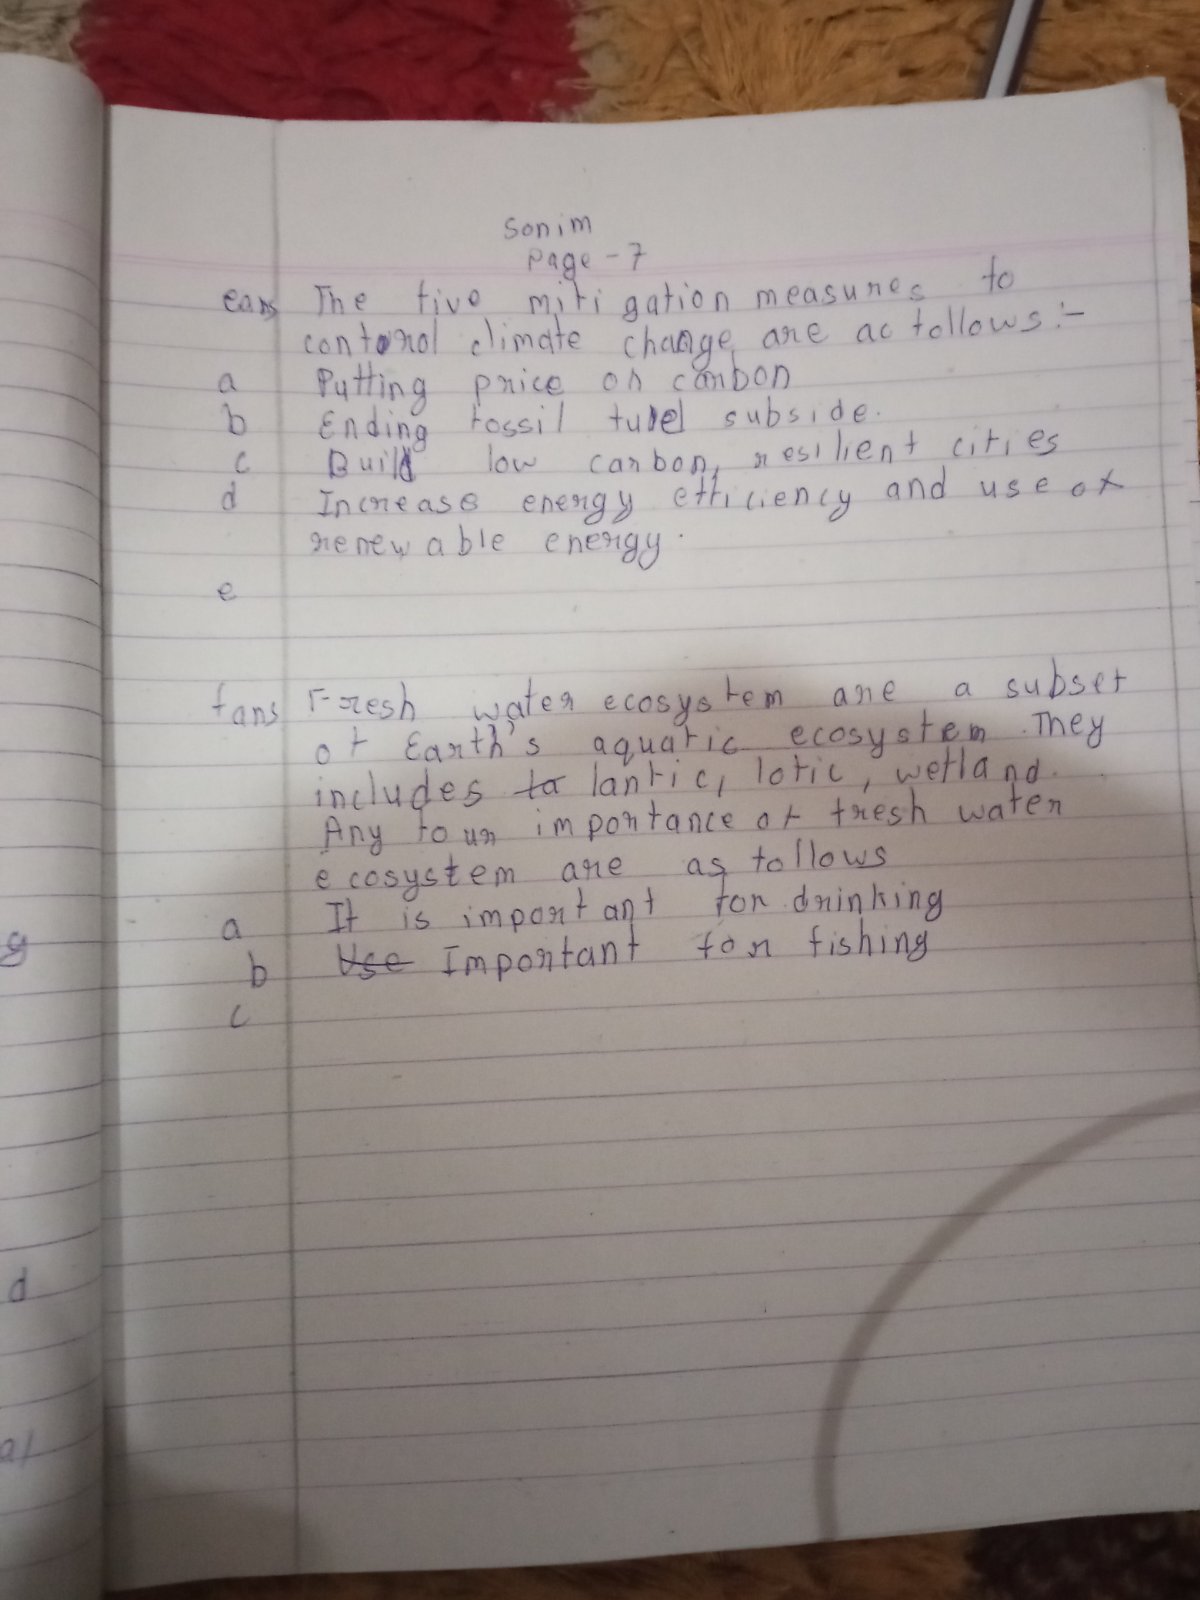 Sonim
Page - 7
eans The five mitigation measures to
contorol climate change, are ac follows :-
a Putting price on carbon
b Ending fossil fuel subside.
c Build low carbon, resilient cities
d Increase energy efficiency and use of
renewable energy.
e
fans Fresh water ecosystem are a subset
of Earth's aquatic ecosystem. They
includes to lantic, lotic, wetland.
Any four importance of fresh water
ecosystem are as follows
a It is important for drinking
b Use Important for fishing
c
g
d
al